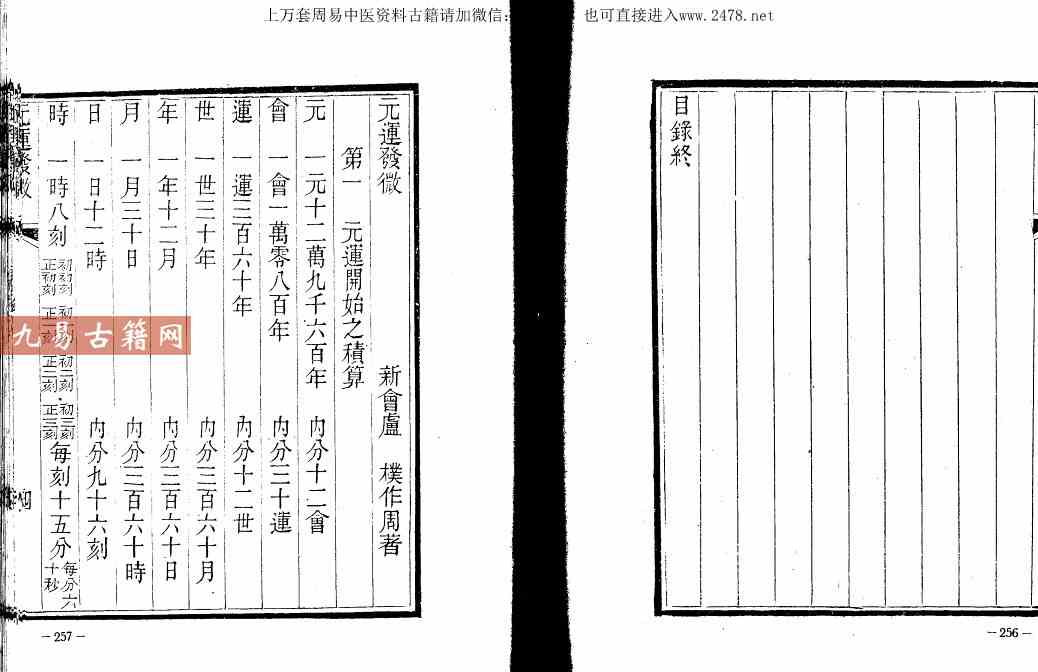 上万套周易中医资料古籍请加微信： 也可直接进入www.2478.net
目錄終
－256－
元運發微 新會盧 樸作周著
第一 元運開始之積算
元 一元十二萬九千六百年 内分十二會
會 一會一萬零八百年 内分三十運
運 一運三百六十年 内分十二世
世 一世三十年 内分三百六十月
年 一年十二月 内分三百六十日
月 一月三十日 内分三百六十時
日 一日十二時 内分九十六刻
時 一時八刻 初初刻 正初刻 初一刻 正一刻 初二刻 正二刻 初三刻 正三刻 每刻十五分 每分六十秒
元運發微
四
－257－
九易古籍网